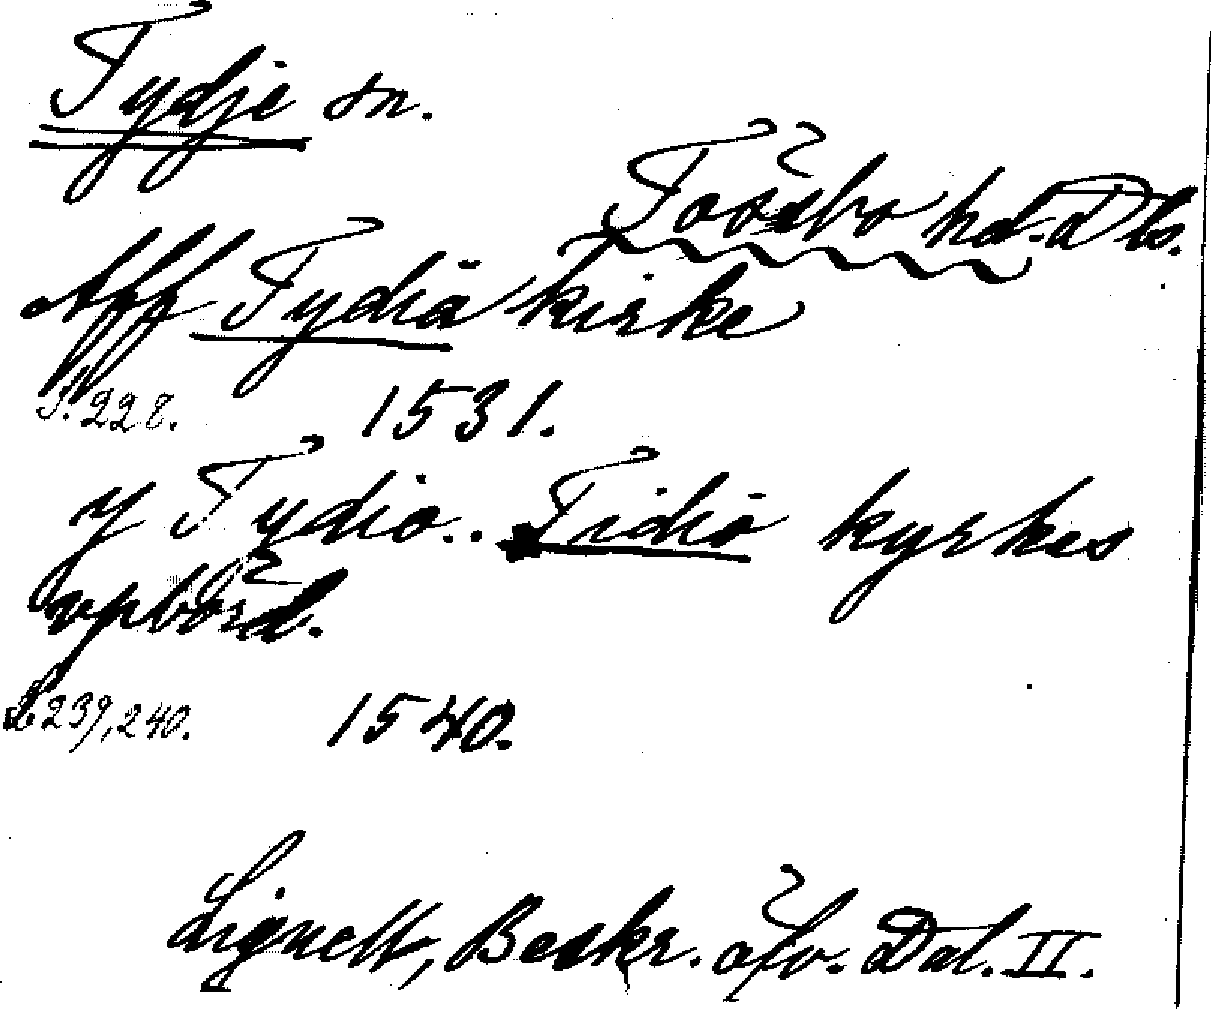 Tydje sn.
Tössbo hd. Dls.
Aff Tydiä kirke
S. 228. 1531.
y Tydiö.. Tidiö kyrkes
vpbörd.
S. 239, 240. 1540.
Lignell, Beskr. öfv. Dal. II.